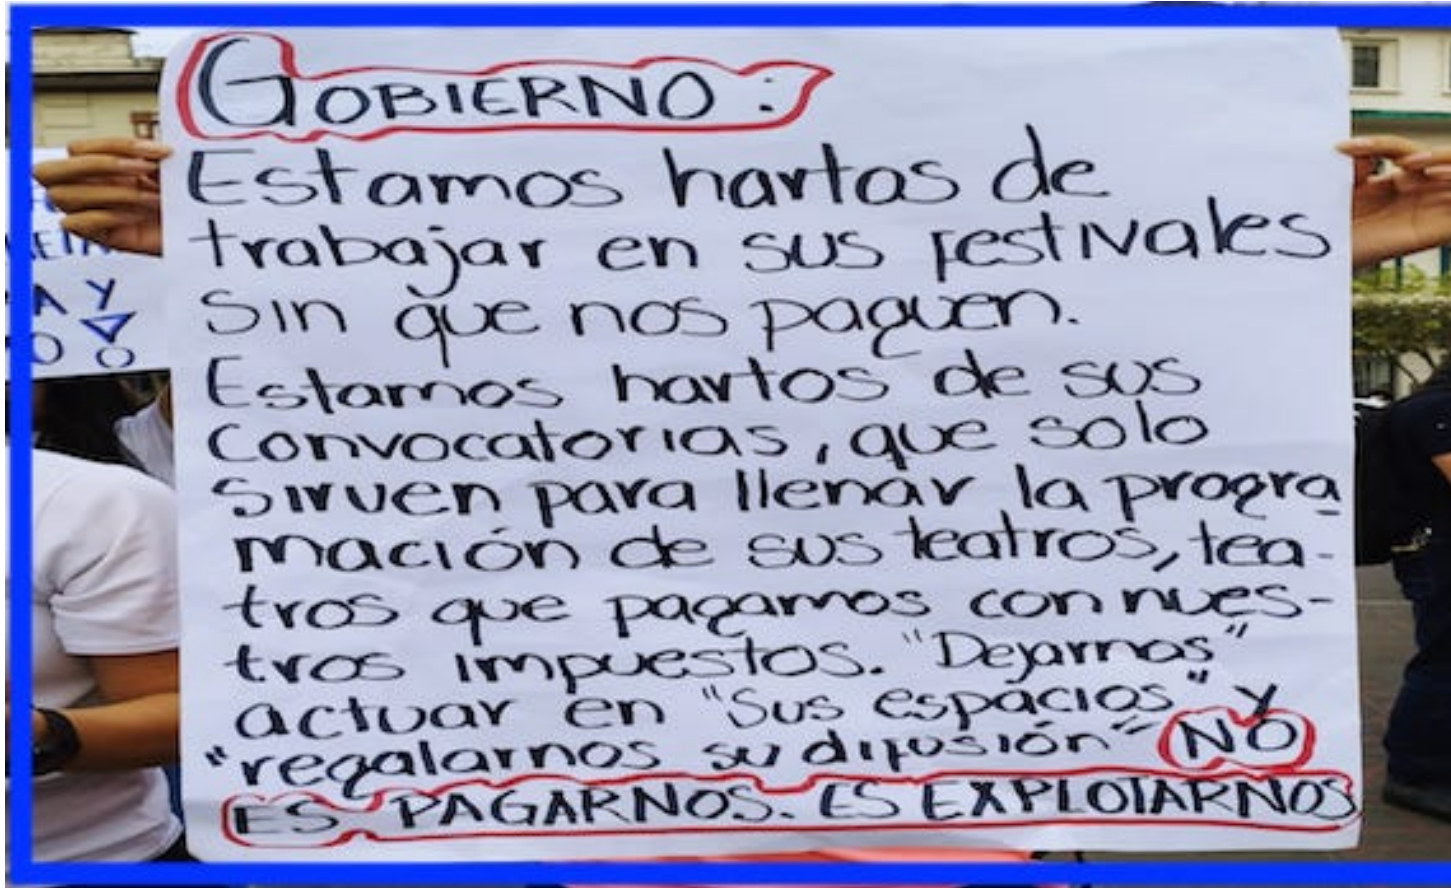 GOBIERNO:
Estamos hartos de
trabajar en sus festivales
sin que nos paguen.
Estamos hartos de sus
convocatorias, que solo
sirven para llenar la progra-
mación de sus teatros, tea-
tros que pagamos con nues-
tros impuestos. "Dejarnos"
actuar en "Sus espacios" y
"regalarnos su difusión" NO
ES PAGARNOS. ES EXPLOTARNOS
A Y